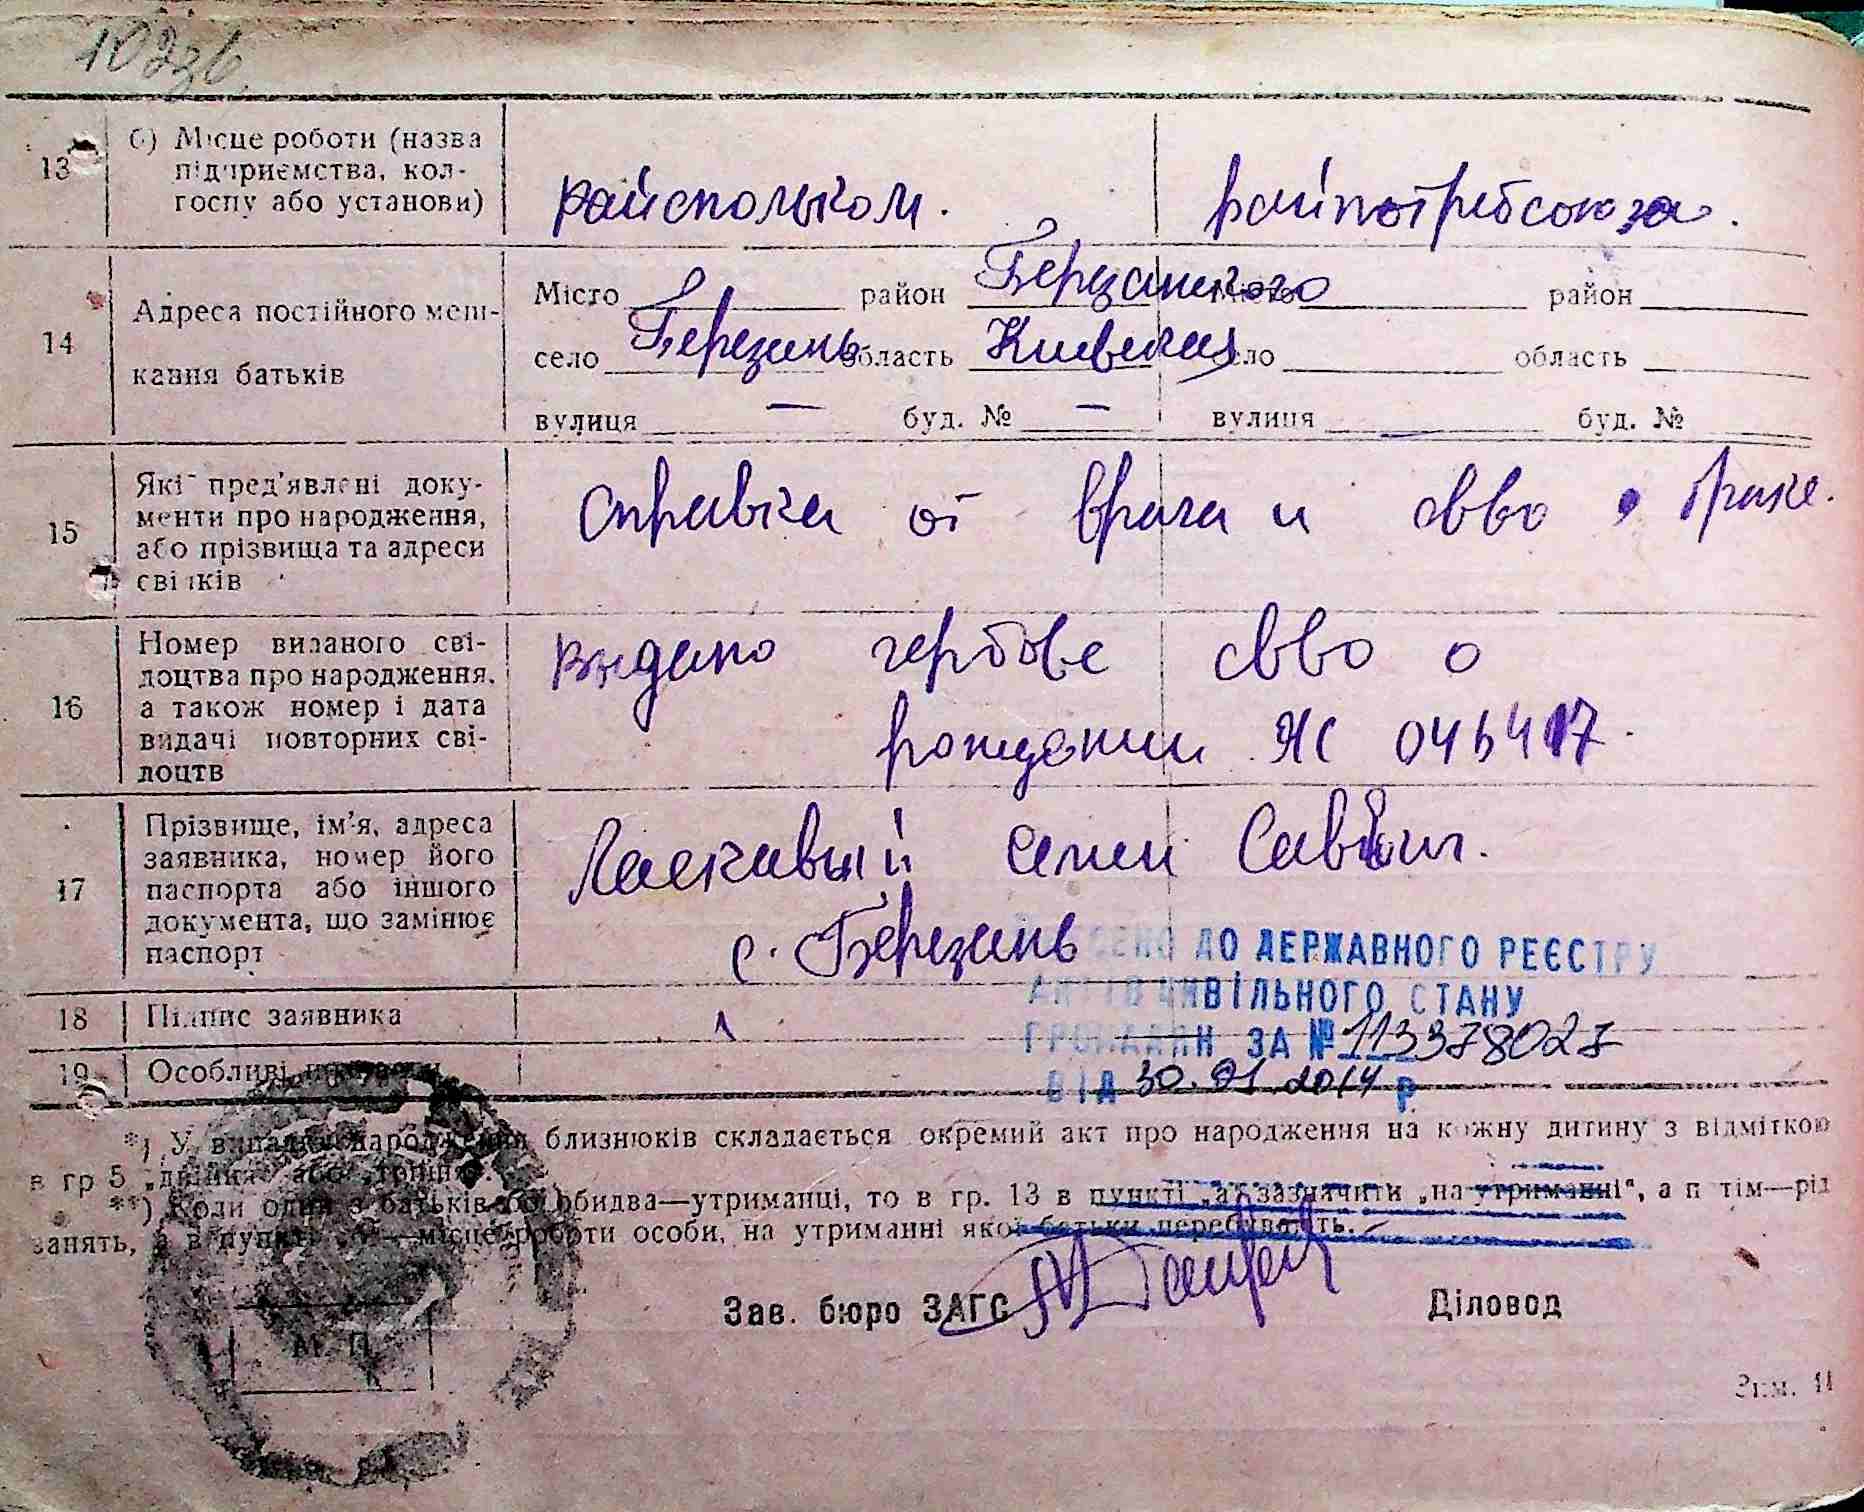 13 б) Місце роботи (назва
підприємства, кол-
госпу або установи)
райсполыком. райпотребсоюза.
14 Адреса постійного меш-
кання батьків
Місто район Березанского Місто район
село Березань область Киевская село область
вулиця — буд. № — вулиця — буд. №
15 Які пред'явлені доку-
менти про народження,
або прізвища та адреси
свідків
Справка от врача и свво о браке.
16 Номер виданого сві-
доцтва про народження,
а також номер і дата
видачі повторних сві-
доцтв
видано гербове свво о
рождении ЯС
17 Прізвище, ім'я, адреса
заявника, номер його
паспорта або іншого
документа, що замінює
паспорт
Ласкавый Семен
с. Березань
ВНЕСЕНО ДО ДЕРЖАВНОГО РЕЄСТРУ
АКТІВ ЦИВІЛЬНОГО СТАНУ
ГРОМАДЯН ЗА № 113378027
ВІД 30.01.2014 Р
18 Підпис заявника
19 Особливі
*) У випадку народження близнюків складається окремий акт про народження на кожну дитину з відміткою
в гр 5 „двійня“ або „трійня“.
**) Коли один з батьків або обидва—утриманці, то в гр. 13 в пункті „а“ зазначити „на утриманні“, а потім—рід
занять, а в пункті „б“—місце роботи особи, на утриманні якої батьки перебувають.
Зав. бюро ЗАГС Діловод
М. П.